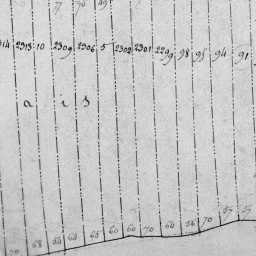 14 2313 10 2309 2306 5 2302 2301 2299 98 95 94 91
a i s
68 68 65 60 60 70 60 56 70 57